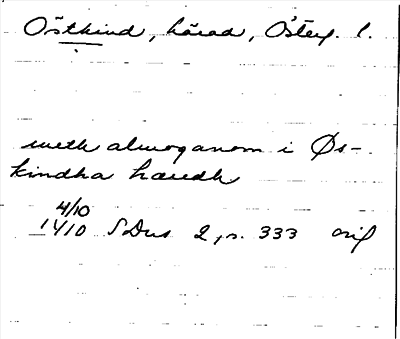 Östkind, härad, Österg. l.
meth almoganom i Øs-
kindha hæredh
4/10
1410 SDns 2, s. 333 orig